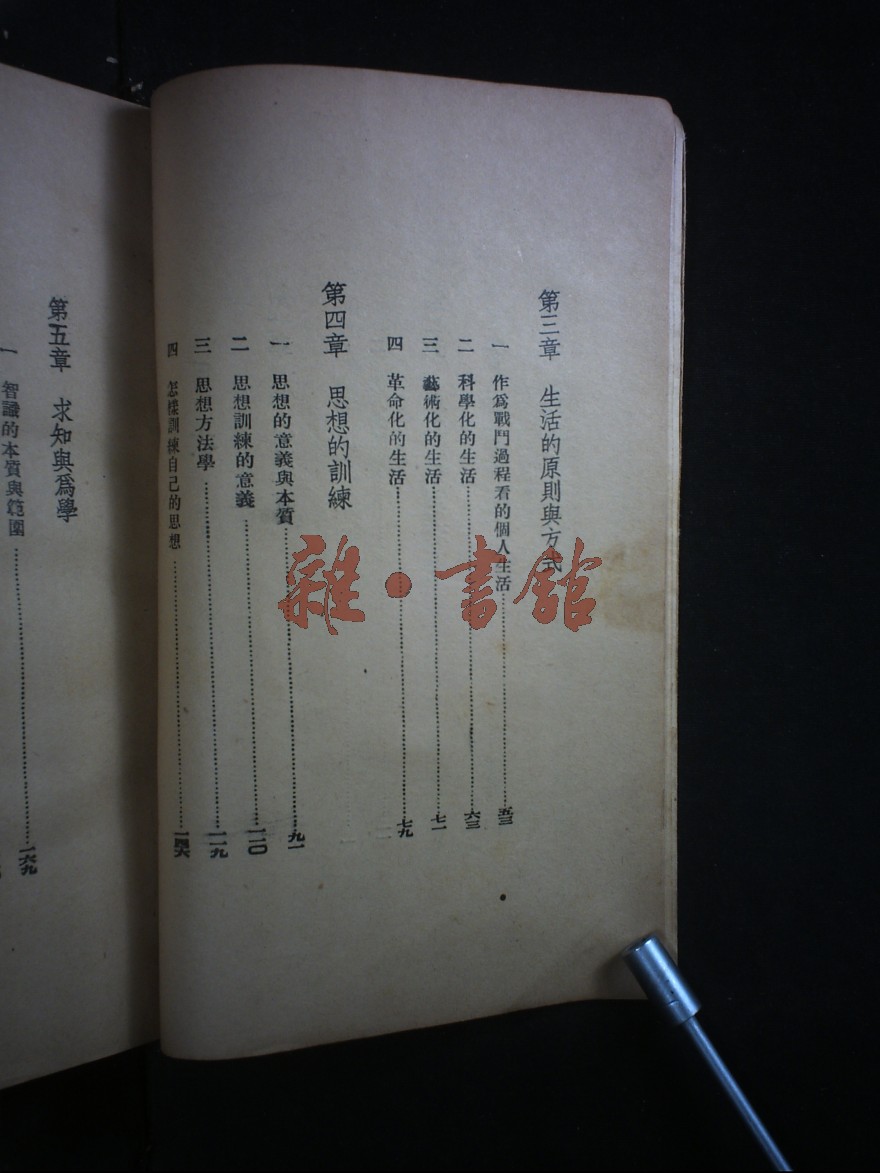 第三章　生活的原則與方式
一　作爲戰鬥過程看的個人生活……五三
二　科學化的生活……六三
三　藝術化的生活……七一
四　革命化的生活……七九
第四章　思想的訓練
一　思想的意義與本質……九一
二　思想訓練的意義……一一〇
三　思想方法學……一一九
四　怎樣訓練自己的思想……一四六
第五章　求知與爲學
一　智識的本質與範圍……一六九
雜·書館